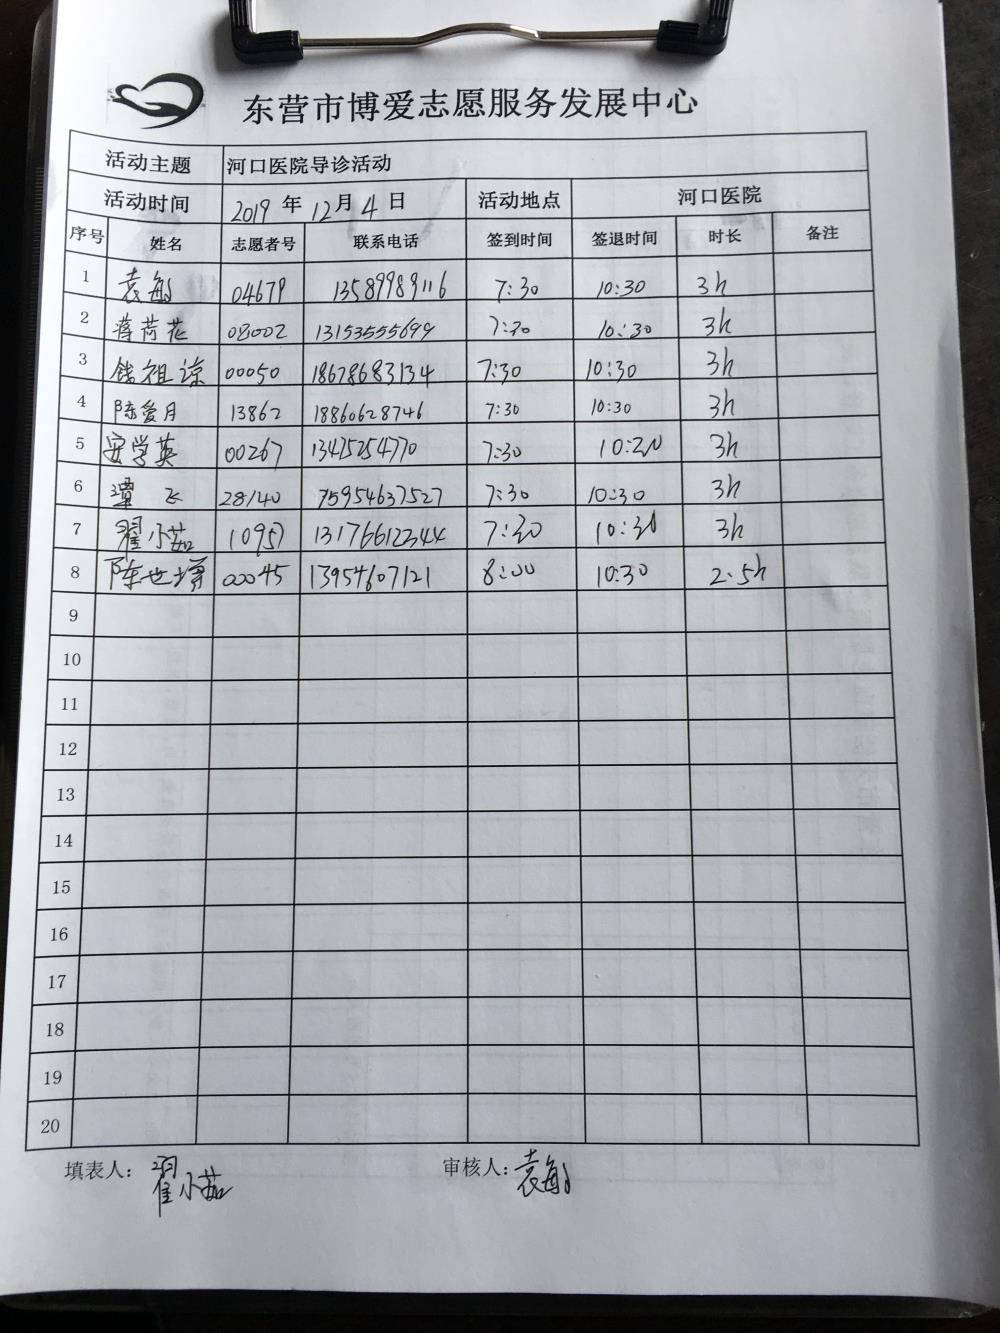 东营市博爱志愿服务发展中心
活动主题 河口医院导诊活动
活动时间 2019 年 12 月 4 日 活动地点 河口医院
序号 姓名 志愿者号 联系电话 签到时间 签退时间 时长 备注
1 袁敏 04679 13589989116 7:30 10:30 3h
2 蒋荷花 08002 13153555699 7:30 10:30 3h
3 钱祖谅 00050 18678683134 7:30 10:30 3h
4 陈爱月 13862 18860628746 7:30 10:30 3h
5 安学英 00267 13475254770 7:30 10:20 3h
6 覃飞 28140 15954637527 7:30 10:30 3h
7 翟小茹 10957 13176612344 7:30 10:30 3h
8 陈世 00045 13954607121 8:00 10:30 2.5h
9
10
11
12
13
14
15
16
17
18
19
20
填表人: 翟小茹 审核人: 袁敏